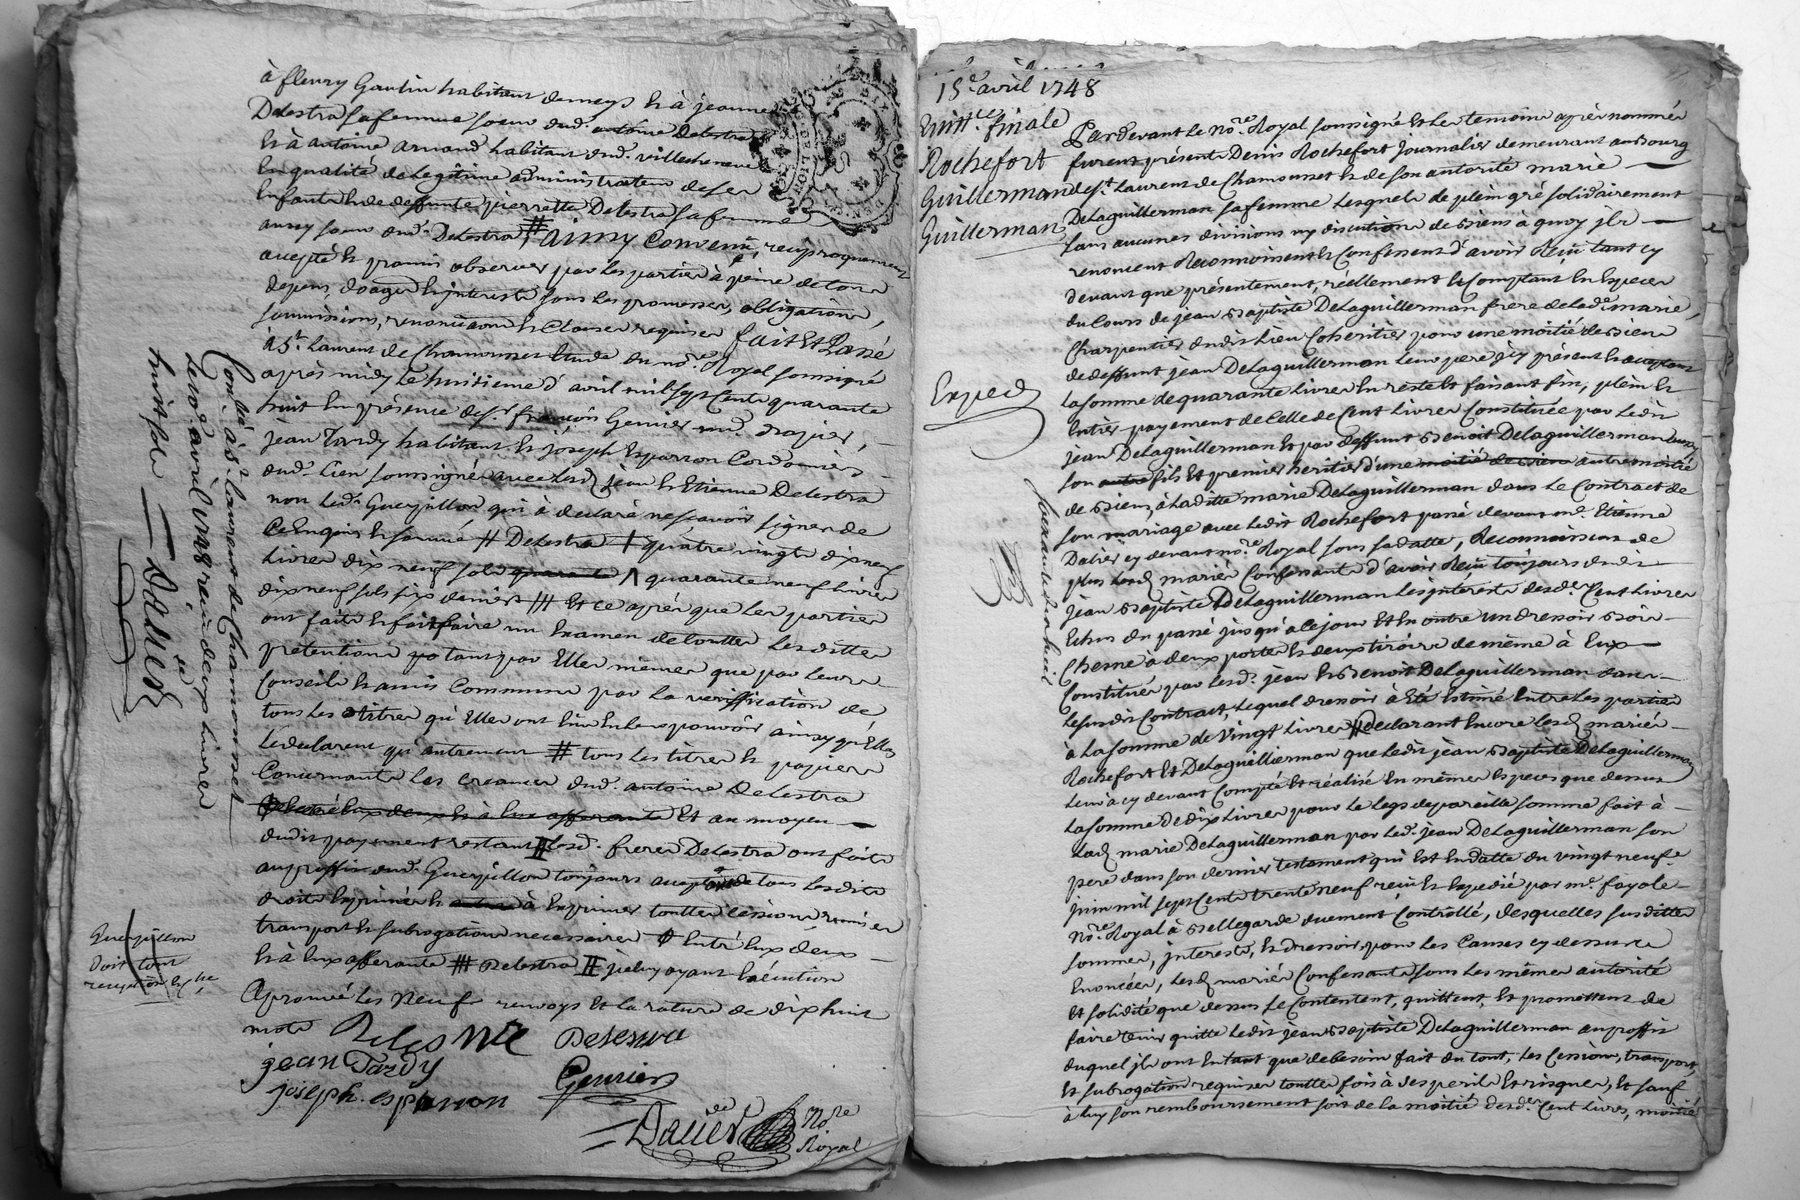 à fleury Gautin habitant demeys & à jeanne
Delestra sa femme soeur dud. antoine Delestra
& à antoine arnaud habitant dud. villecheneve
En qualité de legitime administrateur de ses
Enfants & de deffunte pierrette Delestra sa femme
aussy soeur dud. Delestra # ainsy Convenu, reciproquement
accepté & promis observer par les parties à peine de tous
depens, domages & interests sous les promesses, obligations,
soumissions, renonciations & Clauses requises fait Et Passé
à St. Laurent de Chamousset Etude du no.re Royal soussigné
après midy Le huitieme d'avril mil sept Cents quarante
huit En présence de s.r françois Genrier md. drapier,
jean Tardy habitant & joseph Esparron Cordonnier
dud. Lieu soussignés avec lesd. jean & Etienne Delestra
non led. Guerpillon qui à declaré ne scavoir signer de
Ce Enquis & sommé // Delestra + quatre vingts dix neuf
Livres dix neuf sols quarante Λ quarante neuf Livres
dix neuf sols six deniers /// Et ce après que Les parties
ont faits & fait faire un Examen de touttes Les dittes
pretentions po tant par Elles mêmes que par leurs
Conseils & amis Communs par la veriffication de
tous Les titres qu'Elles ont Eüs En Leur pouvoir ainsy qu'Elles
Le declarent qu'autrement # tous Les titres & papiers
Concernants Les creances dud. antoine Delestra
Et au moyen
dudit payement restant II lesd. freres Delestra ont faits
au proffit dud. Guerpillon toujours acceptant de tous Lesdits
droits Exprimés & à Exprimer touttes cessions remises
transports & subrogations necessaires Φ Entre Eux deux
& à Eux afferants ### Delestra II jceluy ayant Exécution
Aprouvé les neuf renvoys Et la rature de dix huit
mots Delestra Delestra
jean Tardy
Genrier
joseph. esparron
Dauier No.re Royal
Con.lé à St. Laurent de Chamousset
Le 10.e avril 1748 reçu deux Livres
huit sols
Dauier
Guerpillon
doit tout
15.e avril 1748
Quitt.ce finale
Rochefort
Guillerman
Guillerman
Exped
soixante dix huit
Pardevant le No.re Royal soussigné Et Les temoins après nommés
furent présents Denis Rochefort journalier demeurant au Bourg
de St. Laurent de Chamousset & de son autorité marie
DeLaguillerman sa femme Lesquels de plein gré solidairement
sans aucunes divisions ny discutions de Biens à quoy jls
renoncent Reconnoissent & Confessent d'avoir Reçû tant cy
devant que présentement, réellement & Comptant En Especes
du Cours de jean Baptiste DeLaguillerman frere de lad.e marie,
Charpentier dudit Lieu Coheritier pour une moitié des Biens
de deffunt jean DeLaguillerman Leur pere jcy présent & acceptant
La somme de quarante Livres En reste Et faisant fin, plein &
Entier payement de Celle de Cent Livres Constituée par Ledit
jean DeLaguillerman Et par deffunt Benoit DeLaguillerman aussy
son autre fils Et premier heritier d'une moitié de Biens autre moitié
de Biens, à Laditte marie DeLaguillerman dans Le Contract de
son mariage avec Ledit Rochefort passé devant m.e Etienne
Dalier cy devant no.re Royal sous sa datte, Reconnoissent de
plus Lesd. mariés Confessants d'avoir Reçû toujours dudit
jean Baptiste DeLaguillerman Les jnterests desd. Cent Livres
Echus du passé jusqu'à Ce jour Et En outre un dressoir Bois
Chesne à deux portes & deux tiroirs de même à Eux
Constitués par Lesd. jean & Benoit DeLaguillerman dans
Le susdit Contract, Lequel dressoir à Eté Estimé Entre Les parties
à La somme de vingt Livres # declarant Encore Lesd. mariés
Rochefort Et DeLaguillerman que Ledit jean Baptiste DeLaguillerman
Leur à cy devant Compté Et réalisé En mêmes Especes que dessus
La somme de dix Livres pour Le Legs de pareille somme fait à
Lad. marie DeLaguillerman par Led. jean DeLaguillerman son
pere dans son dernier testament qui Est En datte du vingt neuf.e
juin mil sept Cents trente neuf reçu & Expedié par m.e fayole
No.re Royal à Bellegarde duement Controllé, desquelles susdittes
sommes, jnterests, & dressoir, pour Les Causes cy dessus
Enoncées, Lesd. mariés Confessants sous Les mêmes autorité
Et solidité que dessus se Contentent, quittent, & promettent de
faire tenir quitte Ledit jean Baptiste DeLaguillerman au proffit
duquel jls ont En tant que de besoin fait du tout, Les Cessions, transport
Et subrogation requises touttes fois à ses perils Et risques, Et sauf
à Luy son remboursement soit de la moitié desd. Cent Livres, moitié